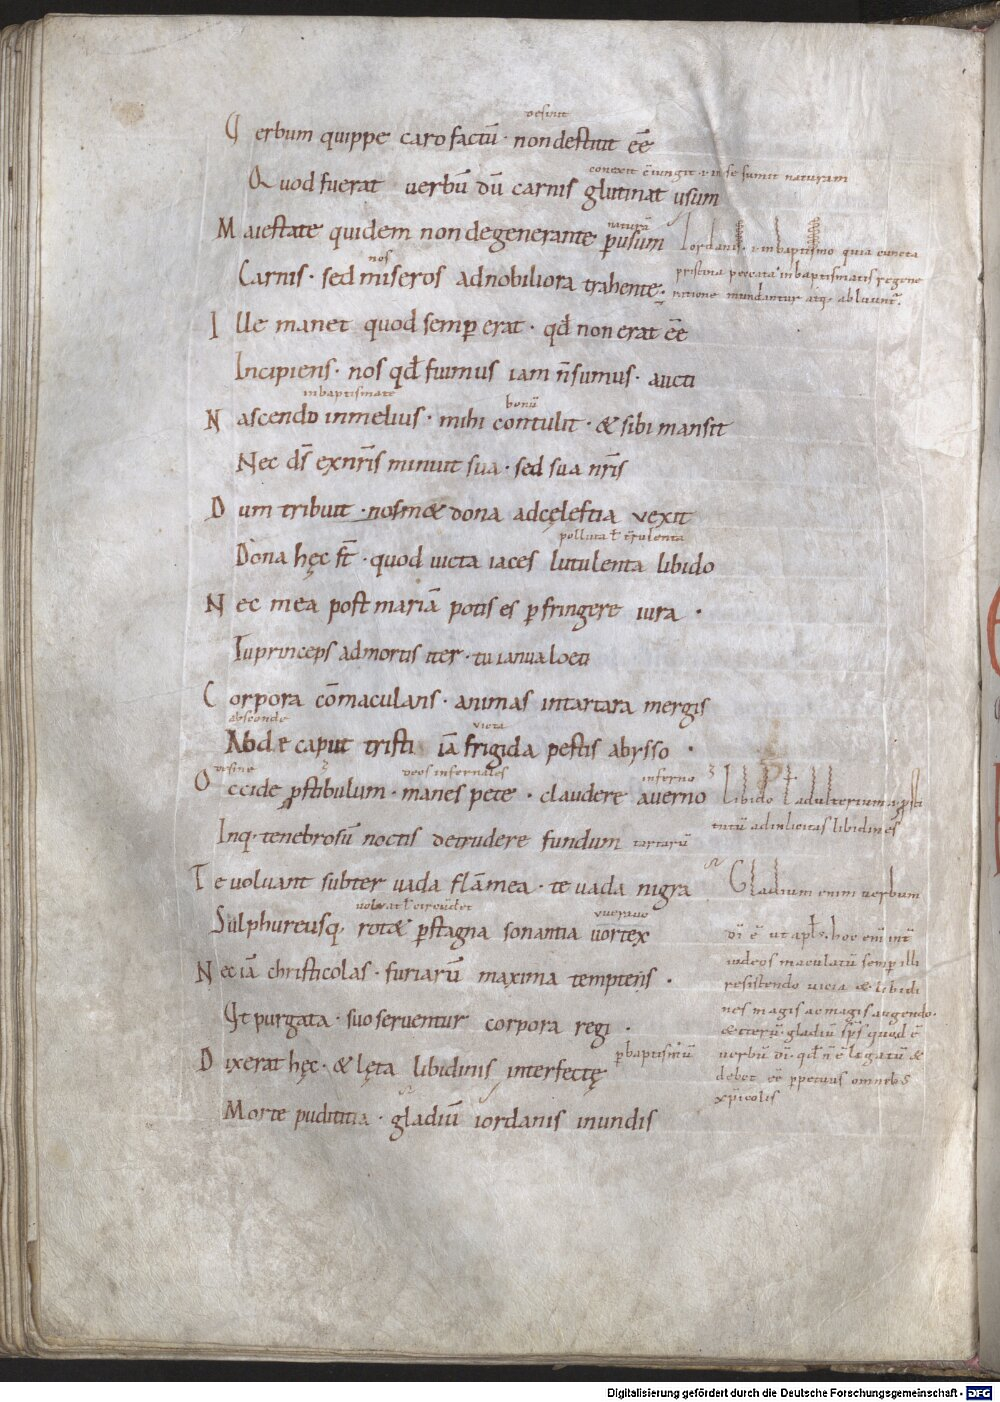 desinit
Verbum quippe caro factū · non destitit eē̄
conexit c̄iungit · i · in se sumit naturam
Quod fuerat uerbū dū carnis glutinat usum
naturā
Maiestate quidem non degenerante p̱ usum
nos
Carnis · sed miseros ad nobiliora trahente ·
Iordanis · i · in baptismo quia cuncta
priscina peccata in baptismatis regene
ratione mundantur atq· abluunt̄ ·
Ille manet quod semp̱ erat · qđ non erat eē̄
Incipiens · nos qđ fuimus iam n̄ sumus · aucti
in baptismate bonū
Nascendo in melius · mihi contulit · & sibi mansit
Nec ds̄ ex nr̄is minuit sua · sed sua nr̄is
Dum tribuit · nosm& dona ad cęlestia vexit
polluta ł t̄rulenta
Dona hęc st̄ · quod uicta iaces lutulenta libido
Nec mea post mariā potis es p̱fringere iura ·
Tu princeps ad mortis iter · tu ianua loeti
Corpora cōmaculans · animas in tartara mergis
absconde victa
Abde caput tristi iā frigida pestis abysso ·
desine deos infernales inferno
Occide p̱stibulum · manes pete · claudere auerno
Libido ł adulterium ł p̱sti
tutū ad inlicitas libidines
Inq· tenebrosū noctis detrudere fundum tartarū
Te voluant subter uada flāmea · te uada nigra
voluat ł circūdet
Sulphureusq· rot& p̱ stagna sonantia uortex
Nec iā christicolas · furiarū maxima temptens ·
Vt purgata · suo seruentur corpora regi ·
p̱ baptismū
Dixerat hęc · & lęta libidinis interfectę
Morte pudititia · gladiū iordanis in undis
Gladium enim uerbum
dī ē ut apłs · hoc enī int̄
iudeos maculatū semp̱ illi
resistendo uicia & libidi
nes magis ac magis augendo ·
& iterū · gladiū sp̄s quod ē
uerbū dī · qđ n̄ ē ligatū &
debet eē̄ p̱petuus omnibus
xp̄icolis
Digitalisierung gefördert durch die Deutsche Forschungsgemeinschaft - DFG